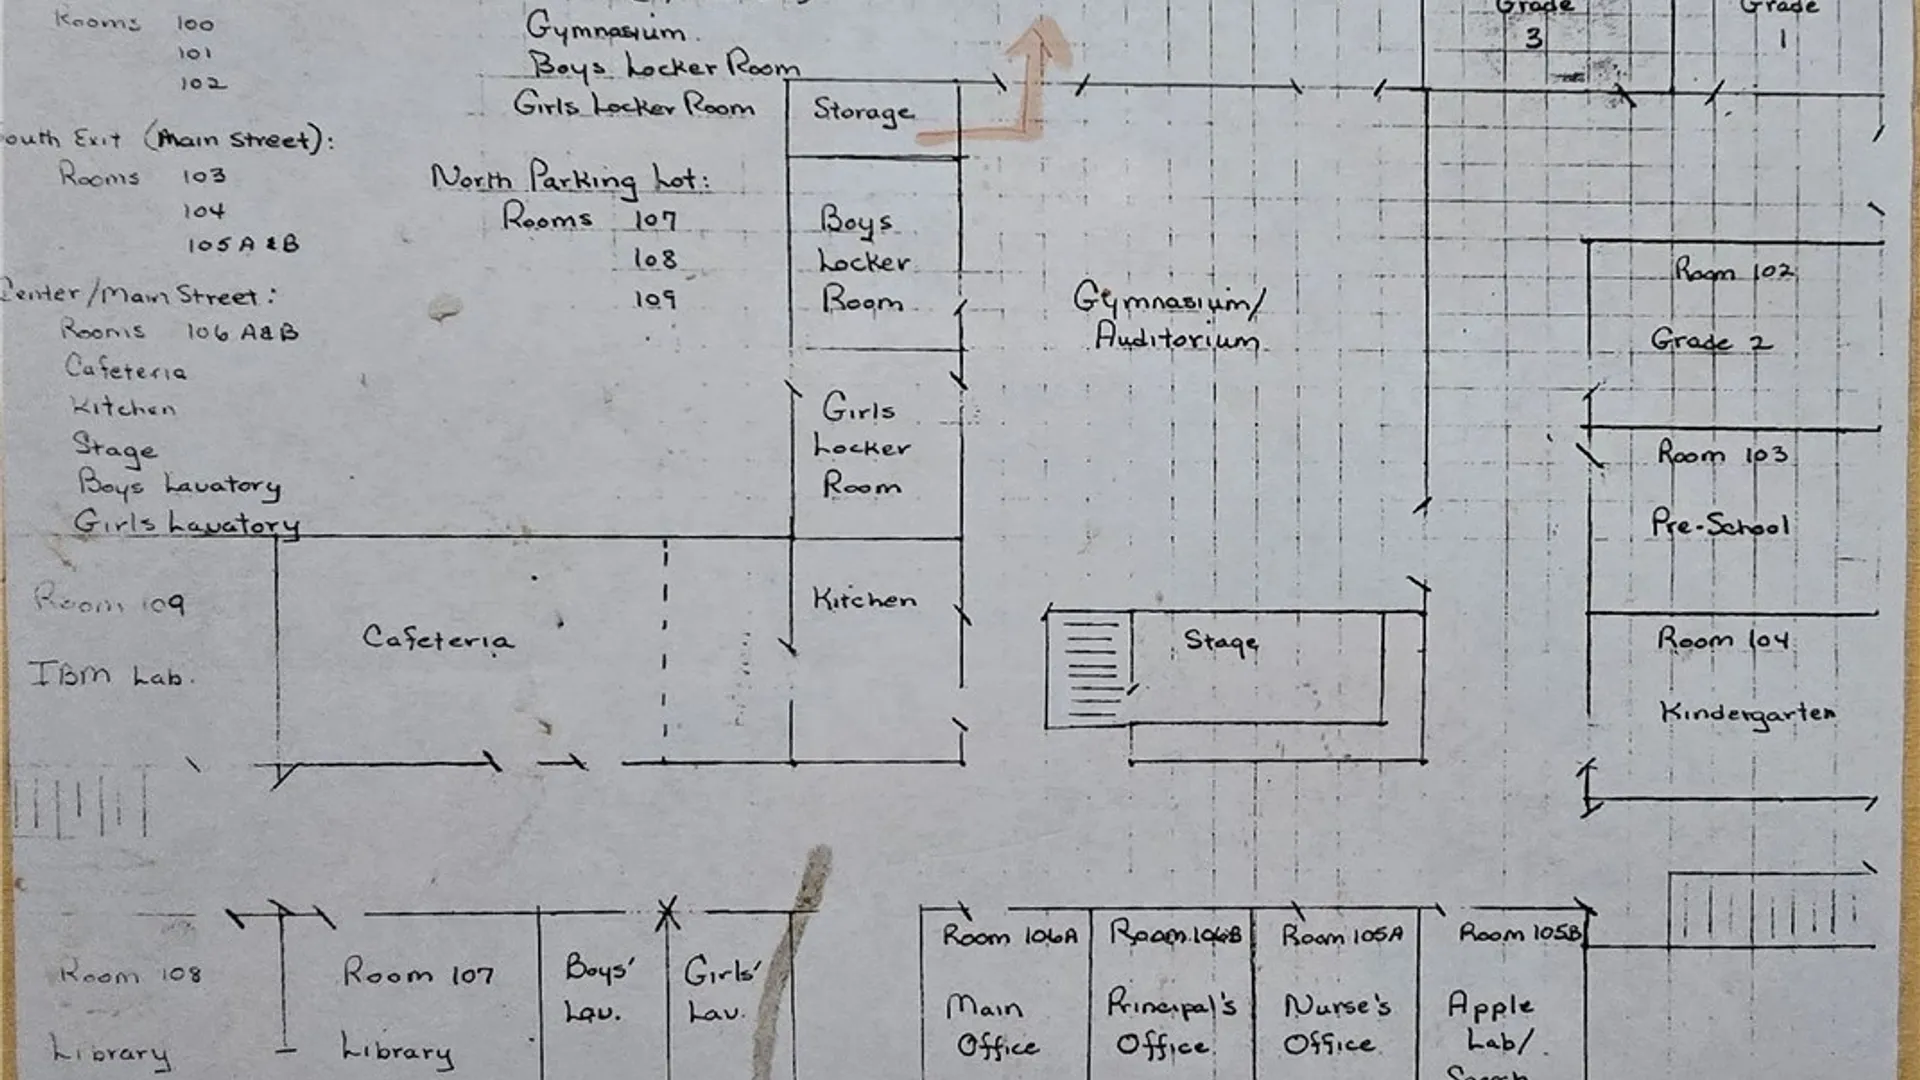 Rooms 100
101
102
South Exit (Main Street):
Rooms 103
104
105 A & B
Center/Main Street:
Rooms 106 A&B
Cafeteria
Kitchen
Stage
Boys Lavatory
Girls Lavatory
Gymnasium
Boys Locker Room
Girls Locker Room
North Parking Lot:
Rooms 107
108
109
Storage
Boys
Locker
Room
Girls
Locker
Room
Kitchen
Gymnasium/
Auditorium
Stage
Grade
3
Grade
1
Room 102
Grade 2
Room 103
Pre-School
Room 104
Kindergarten
Room 109
IBM Lab.
Cafeteria
Room 108
Library
Room 107
Library
Boys'
Lav.
Girls'
Lav.
Room 106A
Main
Office
Room 106B
Principal's
Office
Room 105A
Nurse's
Office
Room 105B
Apple
Lab/